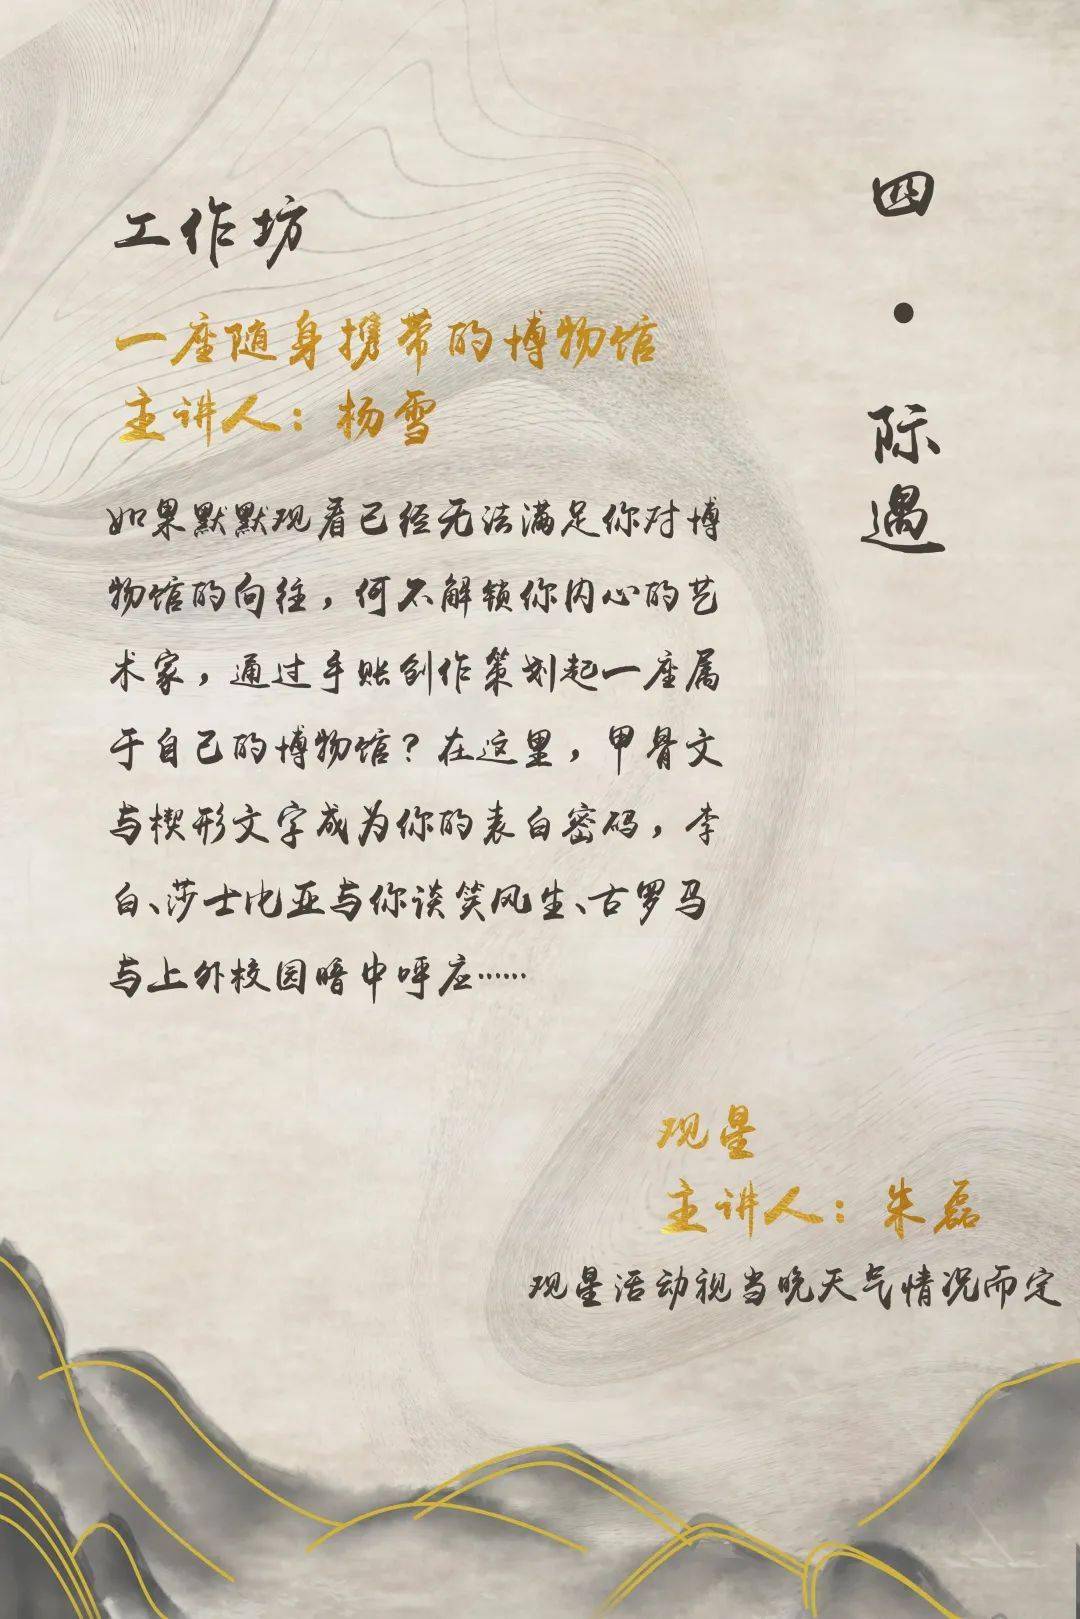 四·际遇
工作坊
一座随身携带的博物馆
主讲人：杨雪
如果默默观看已经无法满足你对博
物馆的向往，何不解锁你内心的艺
术家，通过手账创作策划起一座属
于自己的博物馆？在这里，甲骨文
与楔形文字成为你的表白密码，李
白、莎士比亚与你谈笑风生、古罗马
与上外校园暗中呼应……
观星
主讲人：朱磊
观星活动视当晚天气情况而定